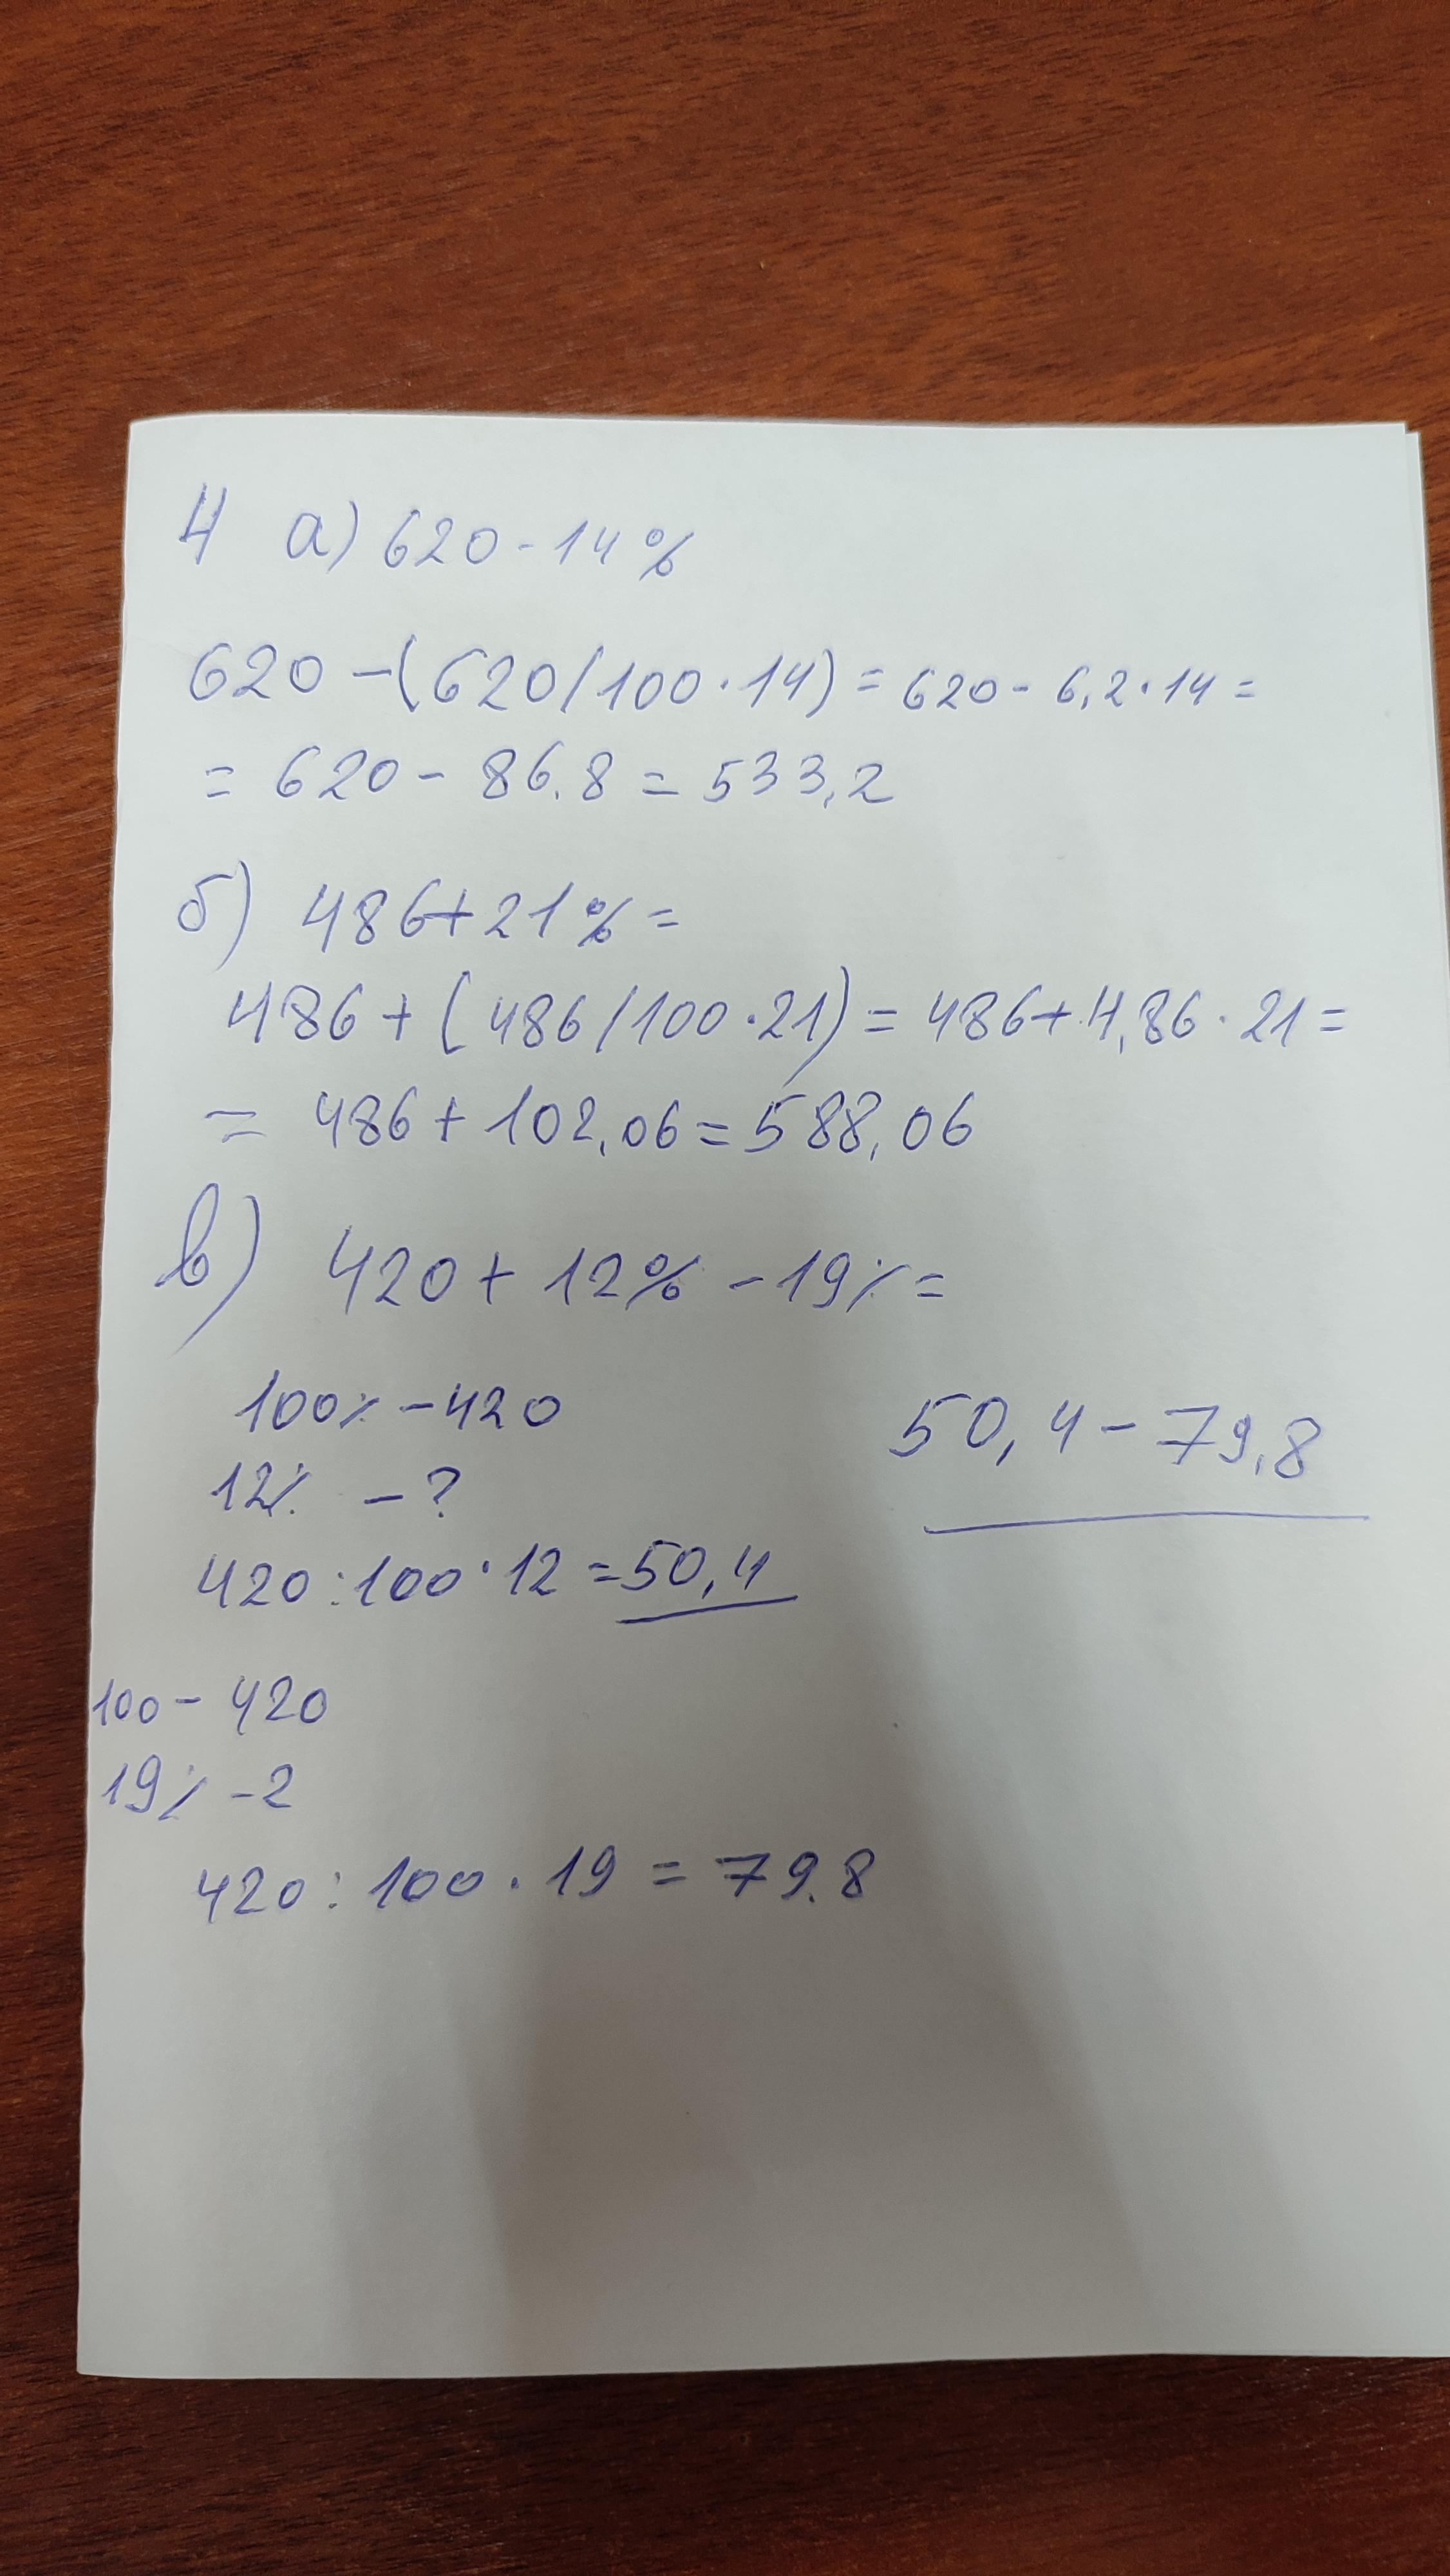 4 а) 620 - 14%
620 - (620/100·14) = 620 - 6,2·14 =
= 620 - 86.8 = 533,2
б) 486+21% =
486 + (486/100·21) = 486+4,86·21 =
= 486 + 102,06 = 588,06
в) 420 + 12% - 19% =
100% - 420
50,4 - 79,8
12% - ?
420:100·12 = 50,4
100 - 420
19% - 2
420:100·19 = 79.8